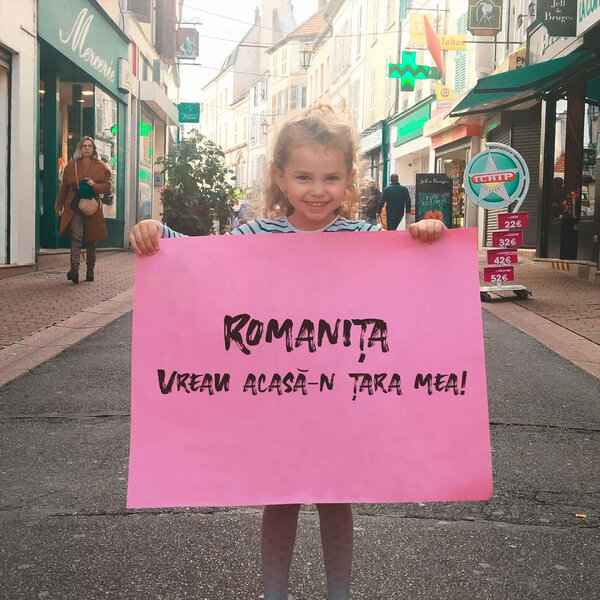 Mercerie
Jeff de Bruges
Tabac
TCRTP
22€
32€
42€
52€
ROMANIȚA
VREAU ACASĂ-N ȚARA MEA!